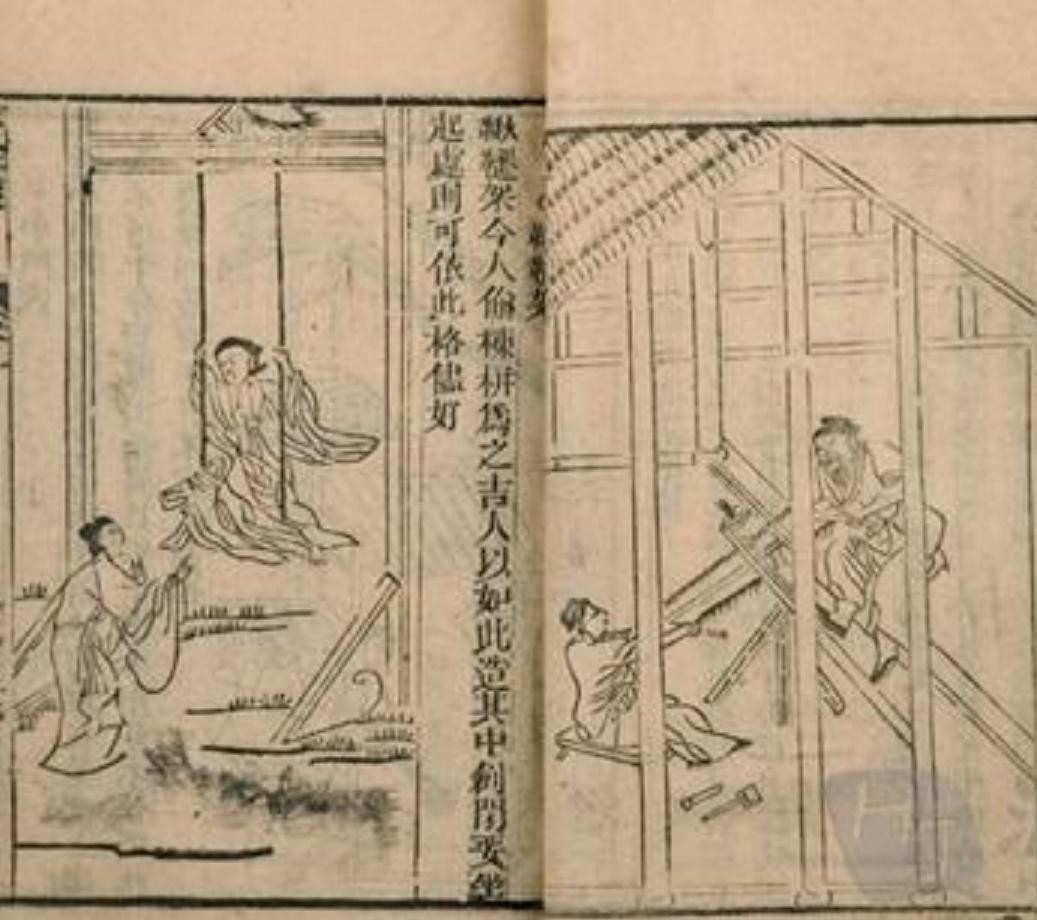 鞦韆架今人偷棟栟爲之吉人以如此造其中創閒要坐
起處則可依此格儘好